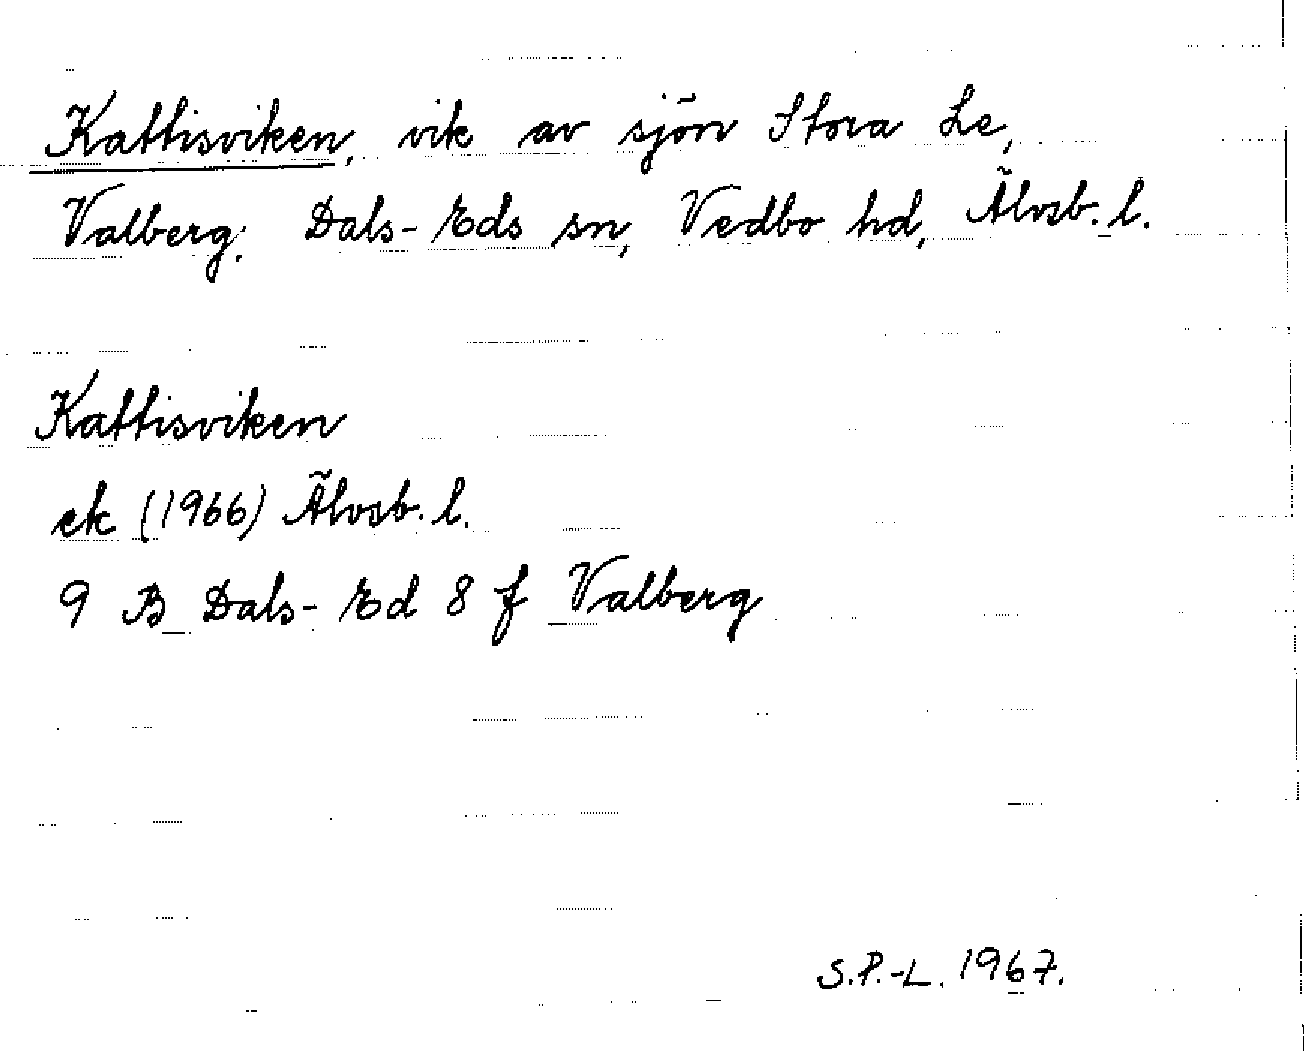 Kattisviken, vik av sjön Stora Le,
Valberg; Dals-Eds sn, Vedbo hd, Älvsb. l.
Kattisviken
ek (1966) Älvsb. l.
9 B Dals-Ed 8 f Valberg
S.P.-L. 1967.